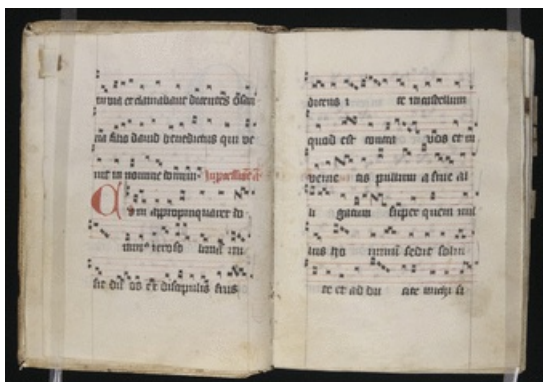 in via et clamabant dicentes Osan
na filio david benedictus qui ve
nit in nomine domini In processione a
Cum apropinquaret do
minus ieroso limā mi
sit duos ex discipulis suis
dicens i te in castellum
quod est contra vos et in
venie tis pullum asine al
li gatum super quem nul
lus ho minum sedit solui
te et ad du cite michi si